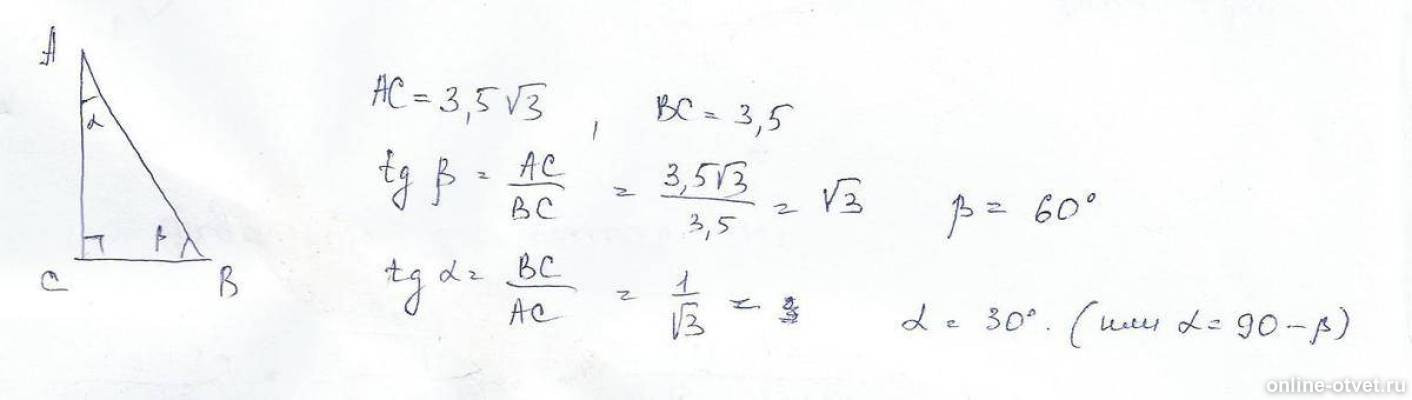 A
α
β
C
B
AC = 3,5√3 , BC = 3,5
tg β = AC/BC = 3,5√3/3,5 = √3 β = 60°
tg α = BC/AC = 1/√3 = α = 30°. (или α = 90 - β)
online-otvet.ru